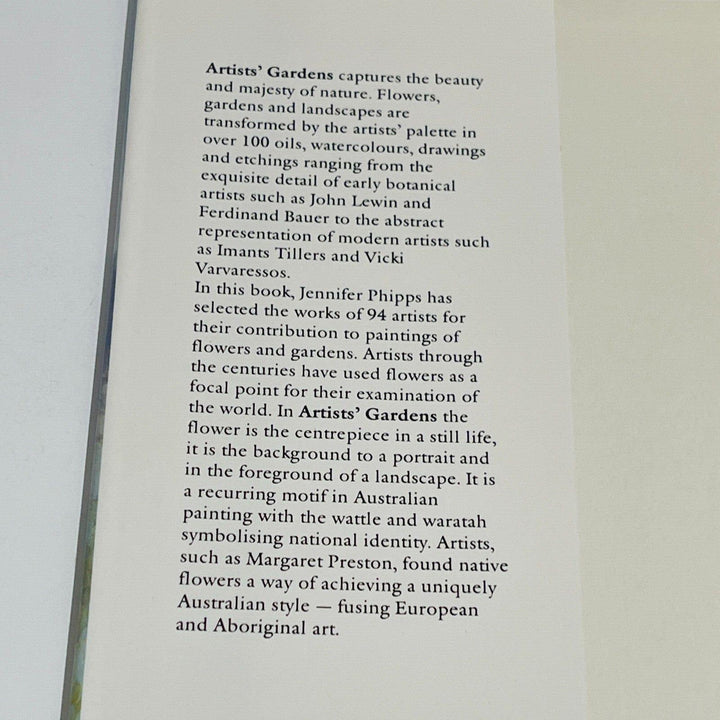 Artists' Gardens captures the beauty
and majesty of nature. Flowers,
gardens and landscapes are
transformed by the artists' palette in
over 100 oils, watercolours, drawings
and etchings ranging from the
exquisite detail of early botanical
artists such as John Lewin and
Ferdinand Bauer to the abstract
representation of modern artists such
as Imants Tillers and Vicki
Varvaressos.
In this book, Jennifer Phipps has
selected the works of 94 artists for
their contribution to paintings of
flowers and gardens. Artists through
the centuries have used flowers as a
focal point for their examination of
the world. In Artists' Gardens the
flower is the centrepiece in a still life,
it is the background to a portrait and
in the foreground of a landscape. It is
a recurring motif in Australian
painting with the wattle and waratah
symbolising national identity. Artists,
such as Margaret Preston, found native
flowers a way of achieving a uniquely
Australian style — fusing European
and Aboriginal art.